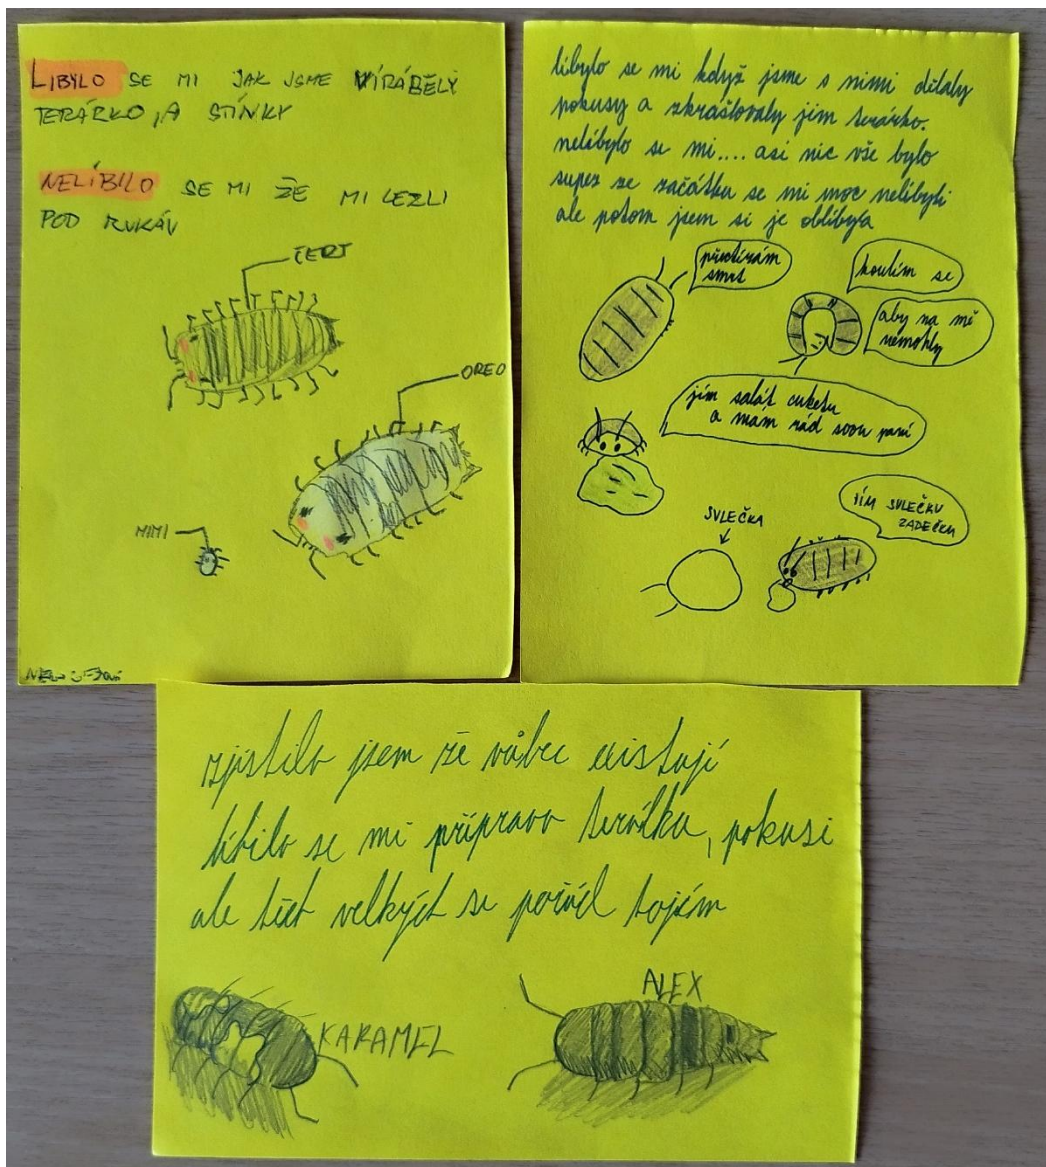 LÍBYLO SE MI JAK JSME VÍRÁBĚLY
TERÁRKO, A STÍNKY
NELÍBILO SE MI ŽE MI LEZLI
POD RUKÁV
ČERT
OREO
MIMI
líbylo se mi když jsme s nimi dělaly
pokusy a zkrášlovaly jim terárko.
nelíbylo se mi.... asi nic vše bylo
super ze začátku se mi moc nelíbyli
ale potom jsem si je oblíbyla
předtírám
smrt
koulím se
aby na mě
nemohly
jím salát cuketu
a mám rád svou paní
SVLEČKA
JÍM SVLEČKU
ZADEČKU
zjistila jsem že vůbec existují
líbila se mi příprava terárka, pokusi
ale těch velkých se pořád bojím
KARAMEL
ALEX